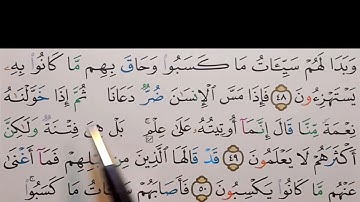 وَبَدَا لَهُمْ سَيِّـَٔاتُ مَا كَسَبُوا۟ وَحَاقَ بِهِم مَّا كَانُوا۟ بِهِۦ
يَسْتَهْزِءُونَ ٤٨ فَإِذَا مَسَّ ٱلْإِنسَٰنَ ضُرٌّ دَعَانَا ثُمَّ إِذَا خَوَّلْنَٰهُ
نِعْمَةً مِّنَّا قَالَ إِنَّمَآ أُوتِيتُهُۥ عَلَىٰ عِلْمٍۭ ۚ بَلْ هِىَ فِتْنَةٌ وَلَٰكِنَّ
أَكْثَرَهُمْ لَا يَعْلَمُونَ ٤٩ قَدْ قَالَهَا ٱلَّذِينَ مِن فَمَآ أَغْنَىٰ
عَنْهُم مَّا كَانُوا۟ يَكْسِبُونَ ٥٠ فَأَصَابَهُمْ سَيِّـَٔاتُ مَا كَسَبُوا۟ ۚ